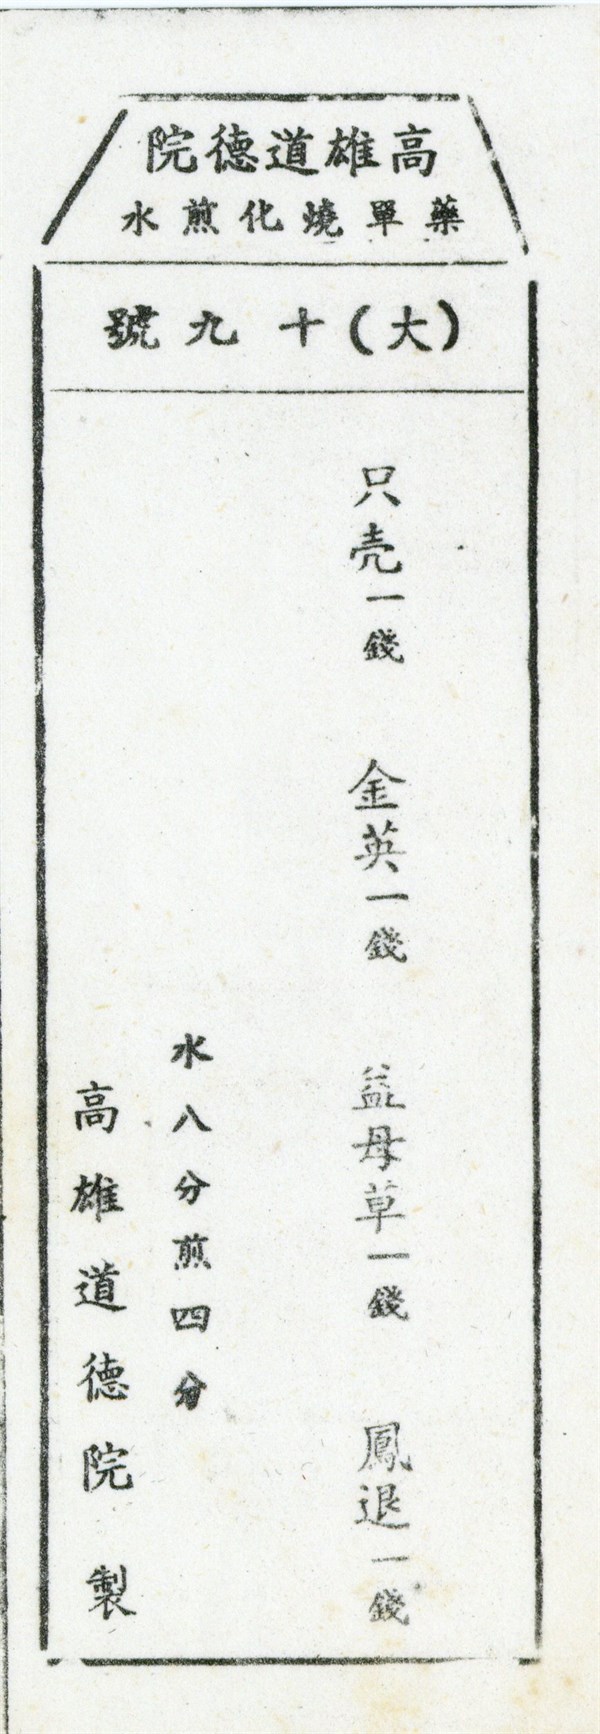 高雄道德院
藥單燒化煎水
(大)十九號
只壳一錢 金英一錢 益母草一錢 鳳退一錢
水八分煎四分
高雄道德院製